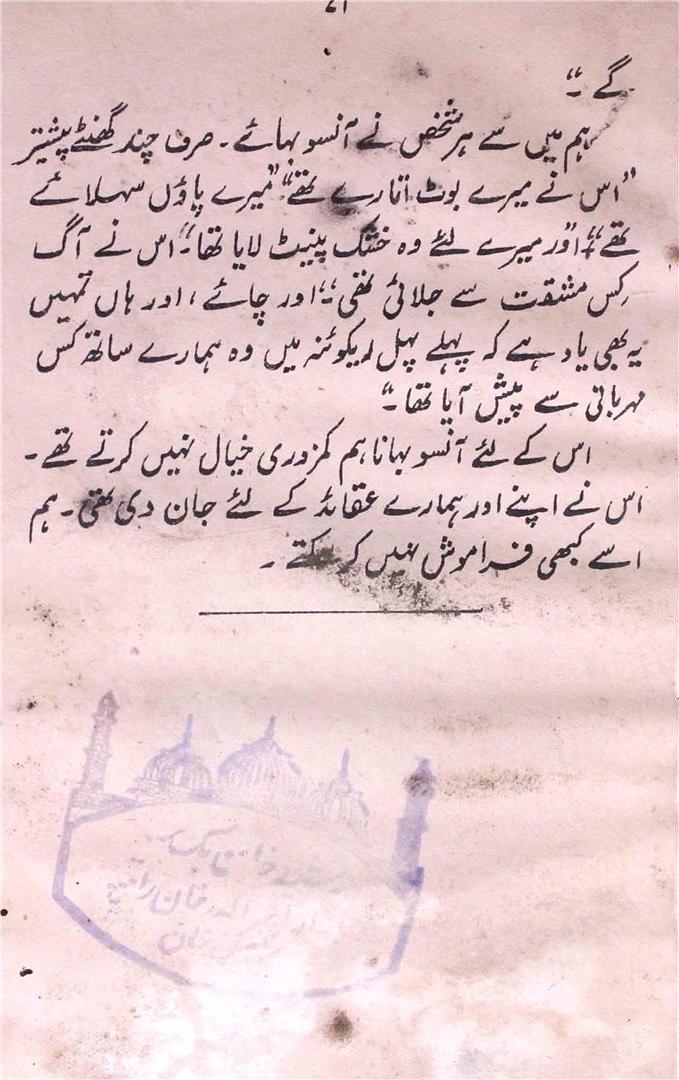 ۷۱
گے ۔“
ہم میں سے ہر شخص نے آنسو بہائے ۔ صرف چند گھنٹے پیشتر
”اس نے میرے بوٹ اتارے تھے“ ”میرے پاؤں سہلائے
تھے“ ”اور میرے لئے وہ خشک پینٹ لایا تھا“ ”اس نے آگ
کس مشقت سے جلائی تھی“ ”اور چائے ، اور ہاں تمہیں
یہ بھی یاد ہے کہ پہلے پہل لریکوئنہ میں وہ ہمارے ساتھ کس
مہربانی سے پیش آیا تھا ۔“
اس کے لئے آنسو بہانا ہم کمزوری خیال نہیں کرتے تھے ۔
اس نے اپنے اور ہمارے عقائد کے لئے جان دی تھی ۔ ہم
اسے کبھی فراموش نہیں کر سکتے ۔
خان